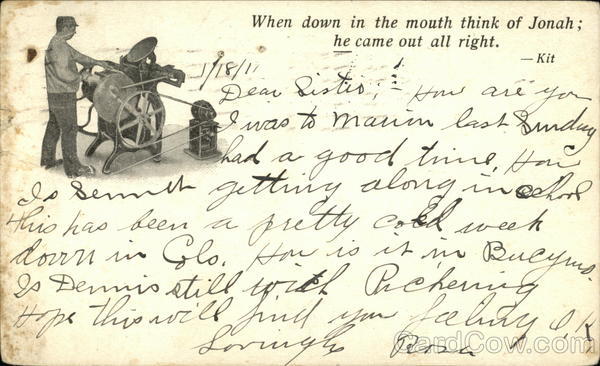 When down in the mouth think of Jonah;
he came out all right.
—Kit
1/18/11
Dear Sister:— How are you
I was to Marion last Sunday
had a good time. How
Is getting along in school
this has been a pretty cold week
down in Cols. How is it in Bucyrus.
Is Dennis still with Pickering
Hope this will find you feeling O.K.
Lovingly Rosa
CardCow.com